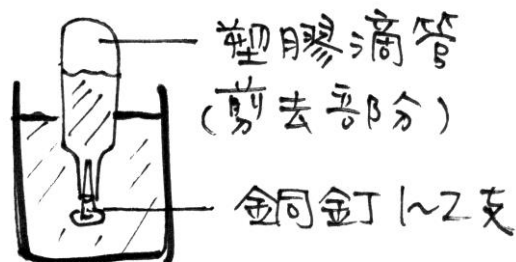 塑膠滴管
(剪去部分)
銅釘 1~2 支